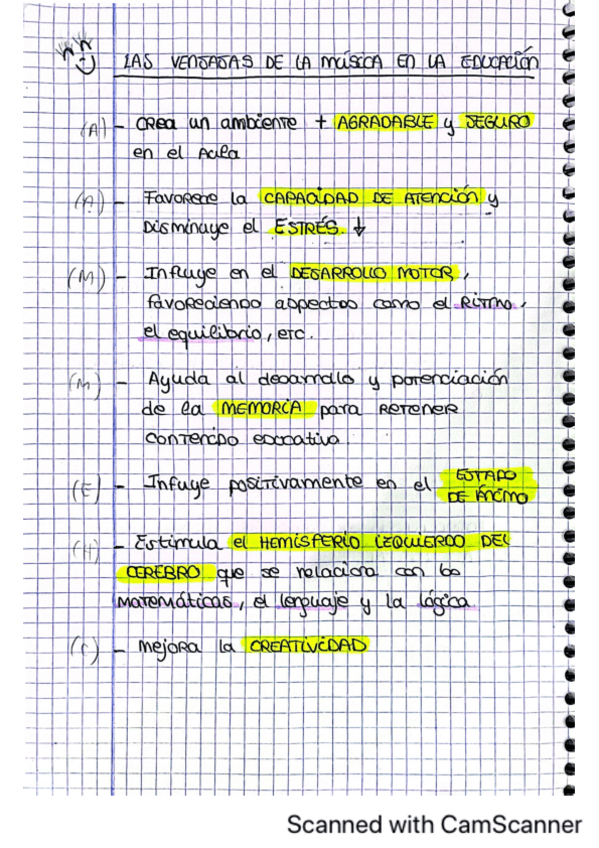 LAS VENTAJAS DE LA MÚSICA EN LA EDUCACIÓN
(A) - Crea un ambiente + AGRADABLE y SEGURO
en el Aula
(A) - Favorece la CAPACIDAD DE ATENCIÓN y
Disminuye el ESTRÉS ↓
(M) - Influye en el DESARROLLO MOTOR,
favoreciendo aspectos como el RITMO,
el equilibrio, etc.
(M) - Ayuda al desarrollo y potenciación
de la MEMORIA para RETENER
contenido educativo
(E) - Infuye positivamente en el ESTADO
DE ÁNIMO
(H) - Estimula el HEMISFERIO IZQUIERDO DEL
CEREBRO que se relaciona con las
matemáticas, el lenguaje y la lógica
(C) - Mejora la CREATIVIDAD
Scanned with CamScanner